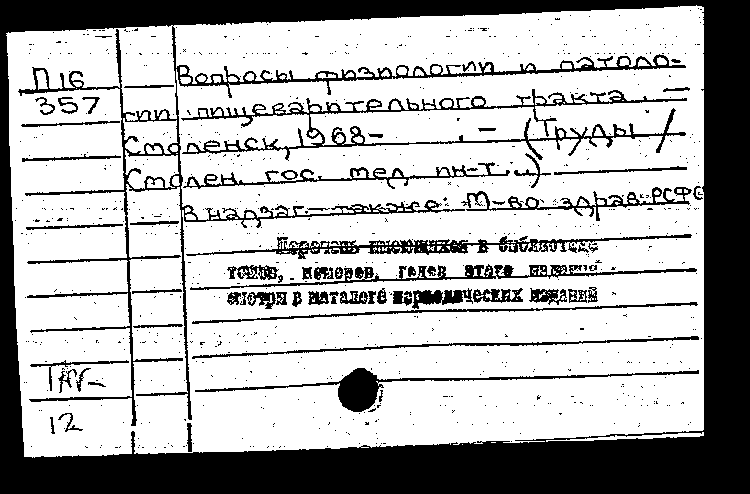 П16
357
Вопросы физиологии и патоло-
гии пищеварительного тракта. —
Смоленск, 1968-     . — (Труды /
Смолен. гос. мед. ин-т. ...)
В надзаг. также: М-во здрав. РСФС
Перечень имеющихся в библиотеке
томов, номеров, годов этого издания
смотри в каталоге периодических изданий
12